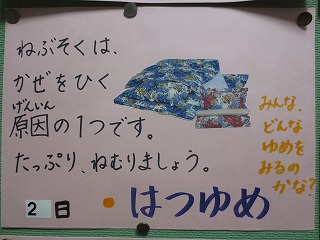 ねぶそくは、
かぜをひく
げんいん
原因の1つです。
たっぷり、ねむりましょう。
みんな、
どんな
ゆめを
みるの
かな?
2日
・はつゆめ